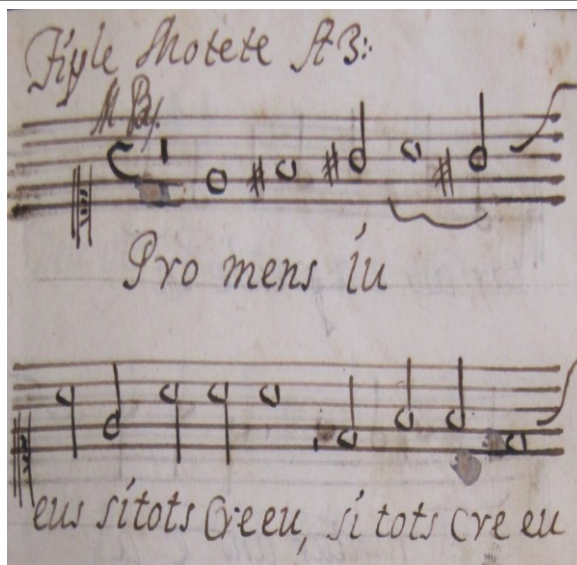 Tiple Motete A3:
Pro mens iu
eus si tots Creeu, si tots cre eu